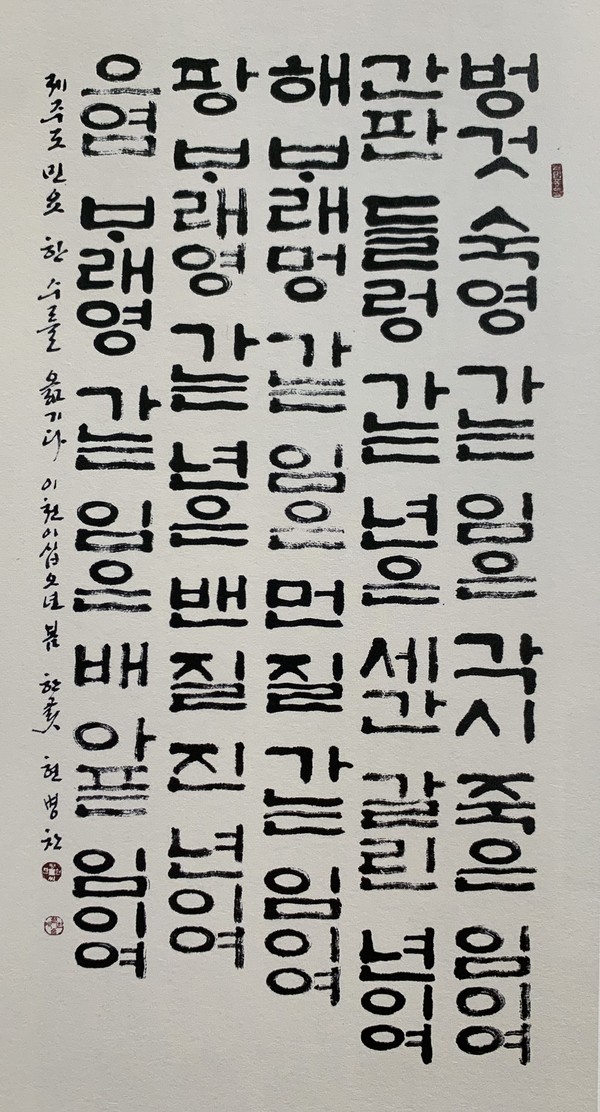 벙것 숙영 가는 임은 각시 죽은 임이여
간판 들렁 가는 년은 세간 갈린 년이여
해 ᄇᆞ래멍 가는 임은 먼 질 가는 임이여
팡 ᄇᆞ래영 가는 년은 밴 질 진 년이여
으염 ᄇᆞ래영 가는 임은 배 아픈 임이여
제주도 민요 한 수를 옮기다 이천이십오년 봄 한곬 현병찬